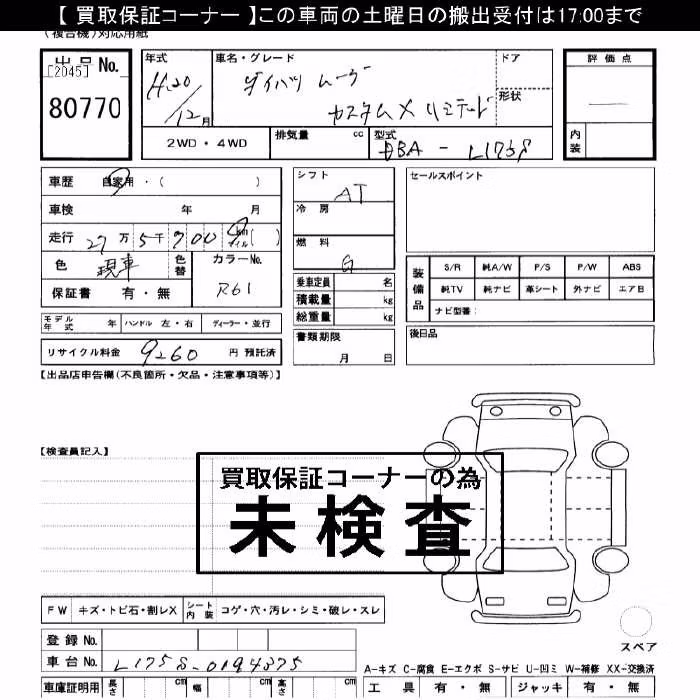 【 買取保証コーナー 】この車両の土曜日の搬出受付は17:00まで
(複合機)対応用紙
出品 No.
[2045]
80770
年式 H20/12月
車名・グレード ダイハツ ムーヴ カスタムX リミテッド
ドア
形状
評価点
内装
2WD・4WD
排気量 cc
型式 DBA - L175S
車歴 自家用・( )
車検 年 月
走行 27万5千900 km マイル ( )
色 現車
色替
カラーNo. R61
保証書 有・無
シフト AT
冷房
燃料 G
乗車定員 名
積載量 kg
総重量 kg
書類期限 月 日
セールスポイント
装備品
S/R 純A/W P/S P/W ABS
純TV 純ナビ 革シート 外ナビ エアB
ナビ型番:
後日品
モデル年式 年 ハンドル 左・右 ディーラー・並行
リサイクル料金 9260 円 預託済
【出品店申告欄(不良箇所・欠品・注意事項等)】
【検査員記入】
買取保証コーナーの為
未検査
FW キズ・トビ石・割レX シート内装 コゲ・穴・汚レ・シミ・破レ・スレ
登録 No.
車台 No. L175S-0194375
車庫証明用 長さ cm 幅 cm 高さ cm
スペア
A-キズ C-腐食 E-エクボ S-サビ U-凹ミ W-補修 XX-交換済
工具 有・無 ジャッキ 有・無